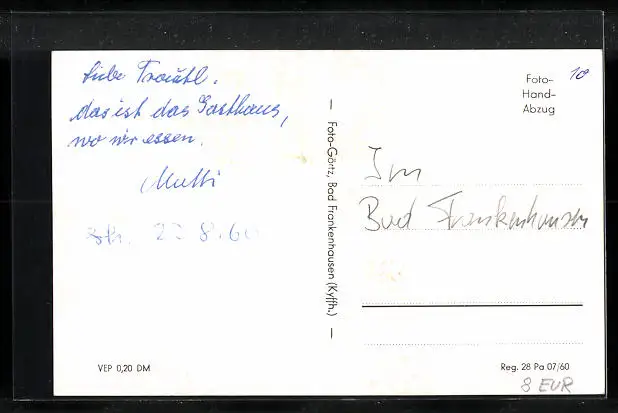 Liebe Troudl.
das ist das Gasthaus,
wo wir essen.
Mutti
22.8.60
— Foto-Görtz, Bad Frankenhausen (Kyffh.) —
Foto-
Hand-
Abzug
10
Bad Frankenhausen
VEP 0,20 DM
Reg. 28 Pa 07/60
8 EUR